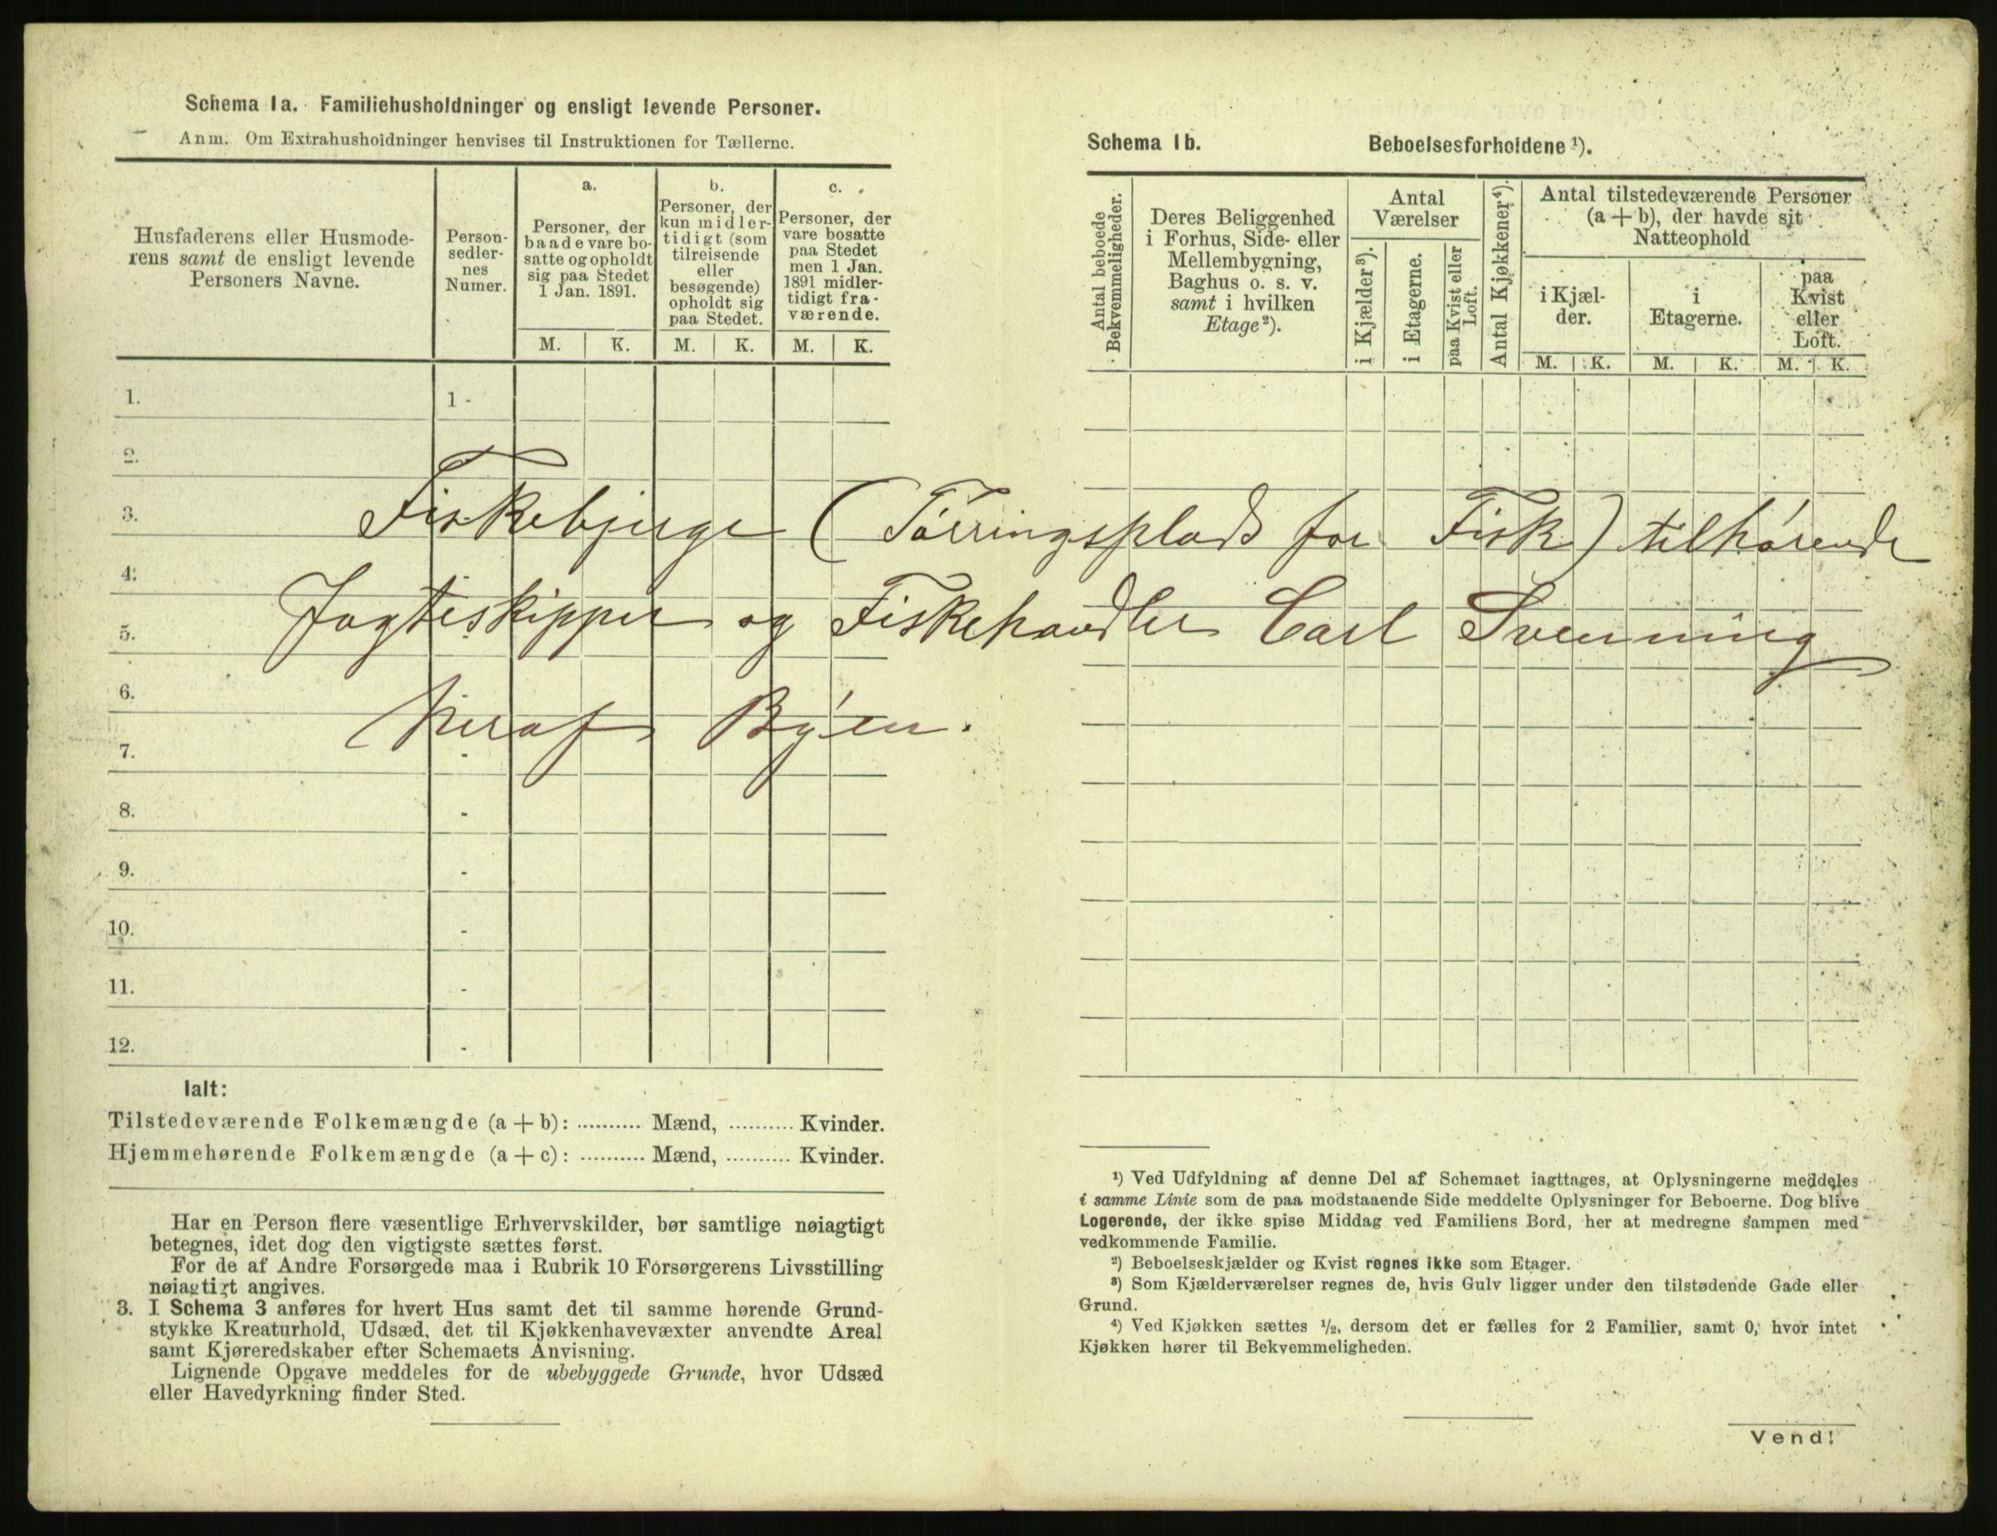 Schema 1a. Familiehusholdninger og ensligt levende Personer.
Anm. Om Extrahusholdninger henvises til Instruktionen for Tællerne.
Husfaderens eller Husmode-
rens samt de ensligt levende
Personers Navne.
Person-
sedler-
nes
Numer.
a.
Personer, der
baade vare bo-
satte og opholdt
sig paa Stedet
1 Jan. 1891.
b.
Personer, der
kun midler-
tidigt (som
tilreisende
eller
besøgende)
opholdt sig
paa Stedet.
c.
Personer, der
vare bosatte
paa Stedet
men 1 Jan.
1891 midler-
tidigt fra-
værende.
M. K. M. K. M. K.
1. 1 -
2.
3.
4.
5.
6.
7. -
8. -
9. -
10. -
11. -
12. -
Fiskebjerge (Tørringsplads for Fisk) tilhørende
Jagteskipper og Fiskehandler Carl Svenning
heraf Byen.
Ialt:
Tilstedeværende Folkemængde (a + b): .......... Mænd, .......... Kvinder.
Hjemmehørende Folkemængde (a + c): .......... Mænd, .......... Kvinder.
Har en Person flere væsentlige Erhvervskilder, bør samtlige nøiagtigt
betegnes, idet dog den vigtigste sættes først.
For de af Andre Forsørgede maa i Rubrik 10 Forsørgerens Livsstilling
nøiagtigt angives.
3. I Schema 3 anføres for hvert Hus samt det til samme hørende Grund-
stykke Kreaturhold, Udsæd, det til Kjøkkenhavevæxter anvendte Areal
samt Kjøreredskaber efter Schemaets Anvisning.
Lignende Opgave meddeles for de ubebyggede Grunde, hvor Udsæd
eller Havedyrkning finder Sted.
Schema 1b. Beboelsesforholdene ¹).
Antal beboede
Bekvemmeligheder.
Deres Beliggenhed
i Forhus, Side- eller
Mellembygning,
Baghus o. s. v.
samt i hvilken
Etage ²).
Antal
Værelser
i Kjælder ³).
i Etagerne.
paa Kvist eller
Loft.
Antal Kjøkkener ⁴).
Antal tilstedeværende Personer
(a + b), der havde sit
Natteophold
i Kjæl-
der.
i
Etagerne.
paa
Kvist
eller
Loft.
M. K. M. K. M. K.
¹) Ved Udfyldning af denne Del af Schemaet iagttages, at Oplysningerne meddeles
i samme Linie som de paa modstaaende Side meddelte Oplysninger for Beboerne. Dog blive
Logerende, der ikke spise Middag ved Familiens Bord, her at medregne sammen med
vedkommende Familie.
²) Beboelseskjælder og Kvist regnes ikke som Etager.
³) Som Kjælderværelser regnes de, hvis Gulv ligger under den tilstødende Gade eller
Grund.
⁴) Ved Kjøkken sættes ½, dersom det er fælles for 2 Familier, samt 0, hvor intet
Kjøkken hører til Bekvemmeligheden.
Vend!